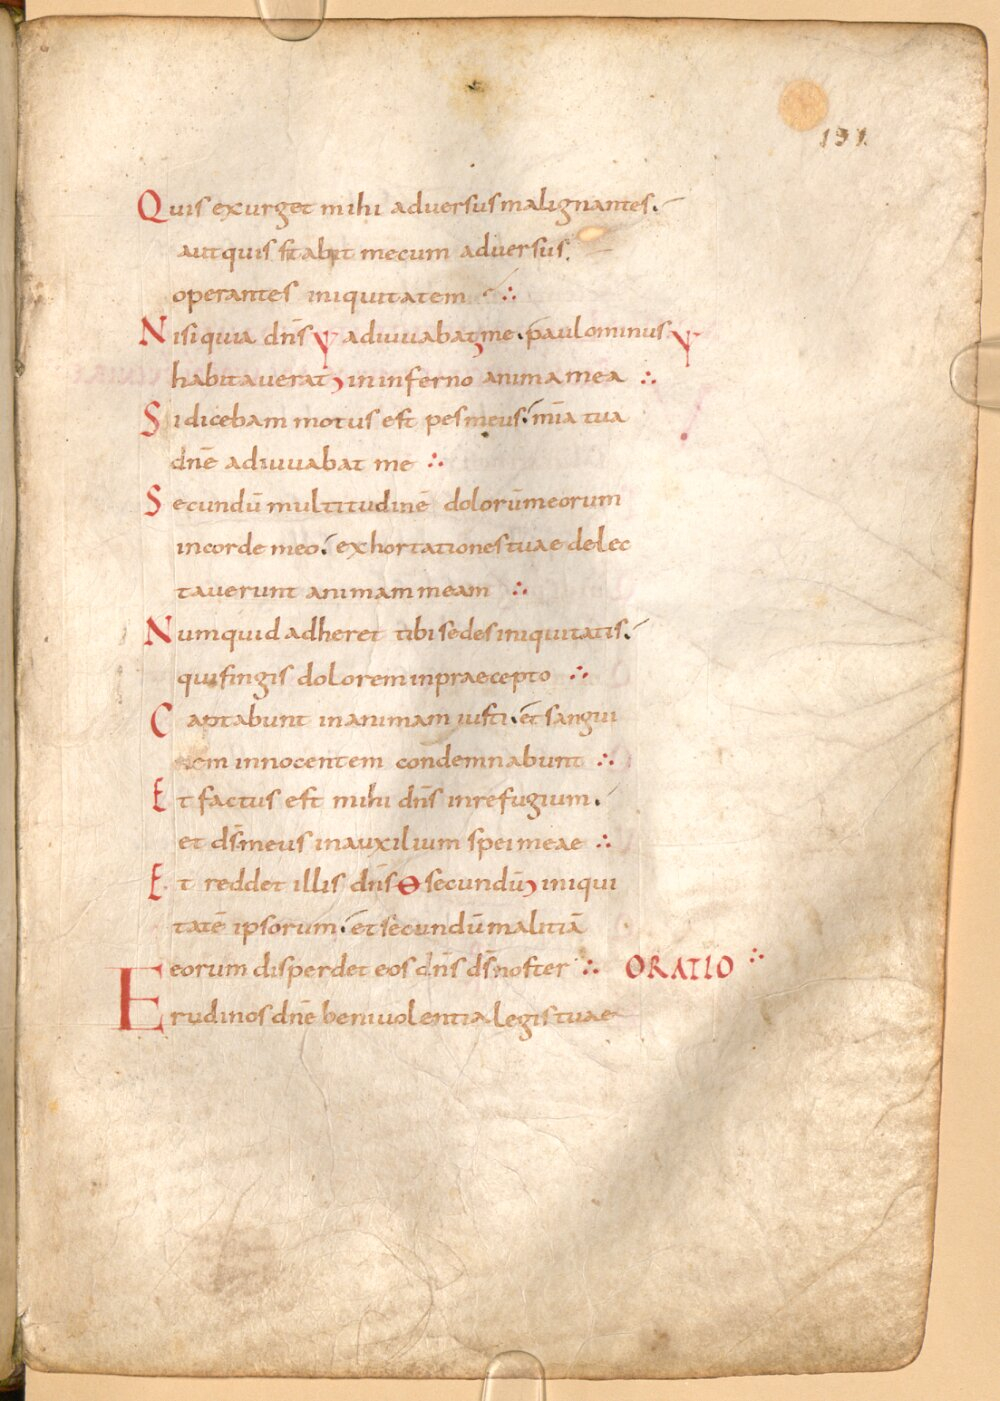 191
Quis exurget mihi adversus malignantes.
aut quis stabit mecum adversus
operantes iniquitatem ∴
Nisi quia dn̄s adiuuabat me. paulominus
habitauerat in inferno anima mea ∴
Si dicebam motus est pes meus. mīa tua
dnē adiuuabat me ∴
Secundū multitudinē dolorū meorum
in corde meo. exhortationes tuae delec
tauerunt animam meam ∴
Numquid adheret tibi sedes iniquitatis.
qui fingis dolorem in praecepto ∴
Captabunt in animam iusti. et sangui
nem innocentem condemnabunt ∴
Et factus est mihi dn̄s in refugium.
et ds̄ meus in auxilium spei meae ∴
Et reddet illis dn̄s secundū iniqui
tatē ipsorum. et secundū malitiā
eorum disperdet eos dn̄s ds̄ noster ∴ ORATIO ∴
Erudi nos dnē beniuolentia legis tuae